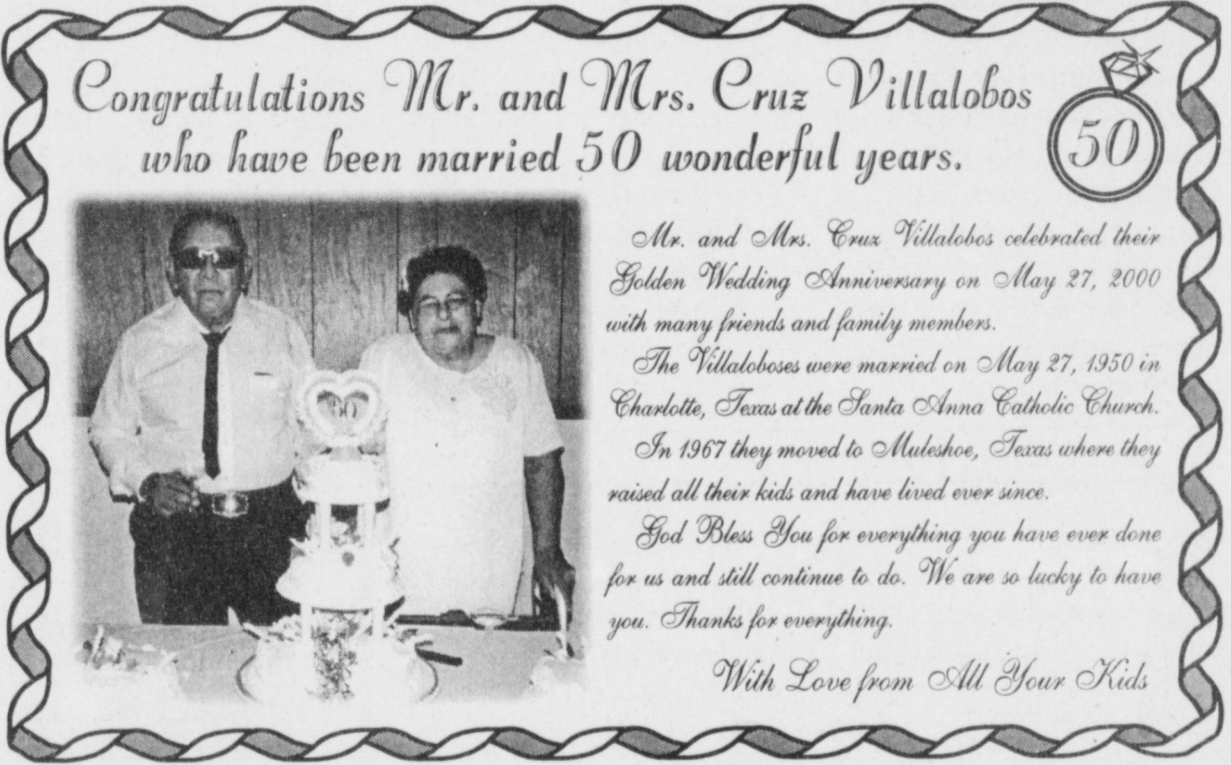 Congratulations Mr. and Mrs. Cruz Villalobos
who have been married 50 wonderful years.
50
Mr. and Mrs. Cruz Villalobos celebrated their
Golden Wedding Anniversary on May 27, 2000
with many friends and family members.
The Villaloboses were married on May 27, 1950 in
Charlotte, Texas at the Santa Anna Catholic Church.
In 1967 they moved to Muleshoe, Texas where they
raised all their kids and have lived ever since.
God Bless You for everything you have ever done
for us and still continue to do. We are so lucky to have
you. Thanks for everything.
With Love from All Your Kids
50